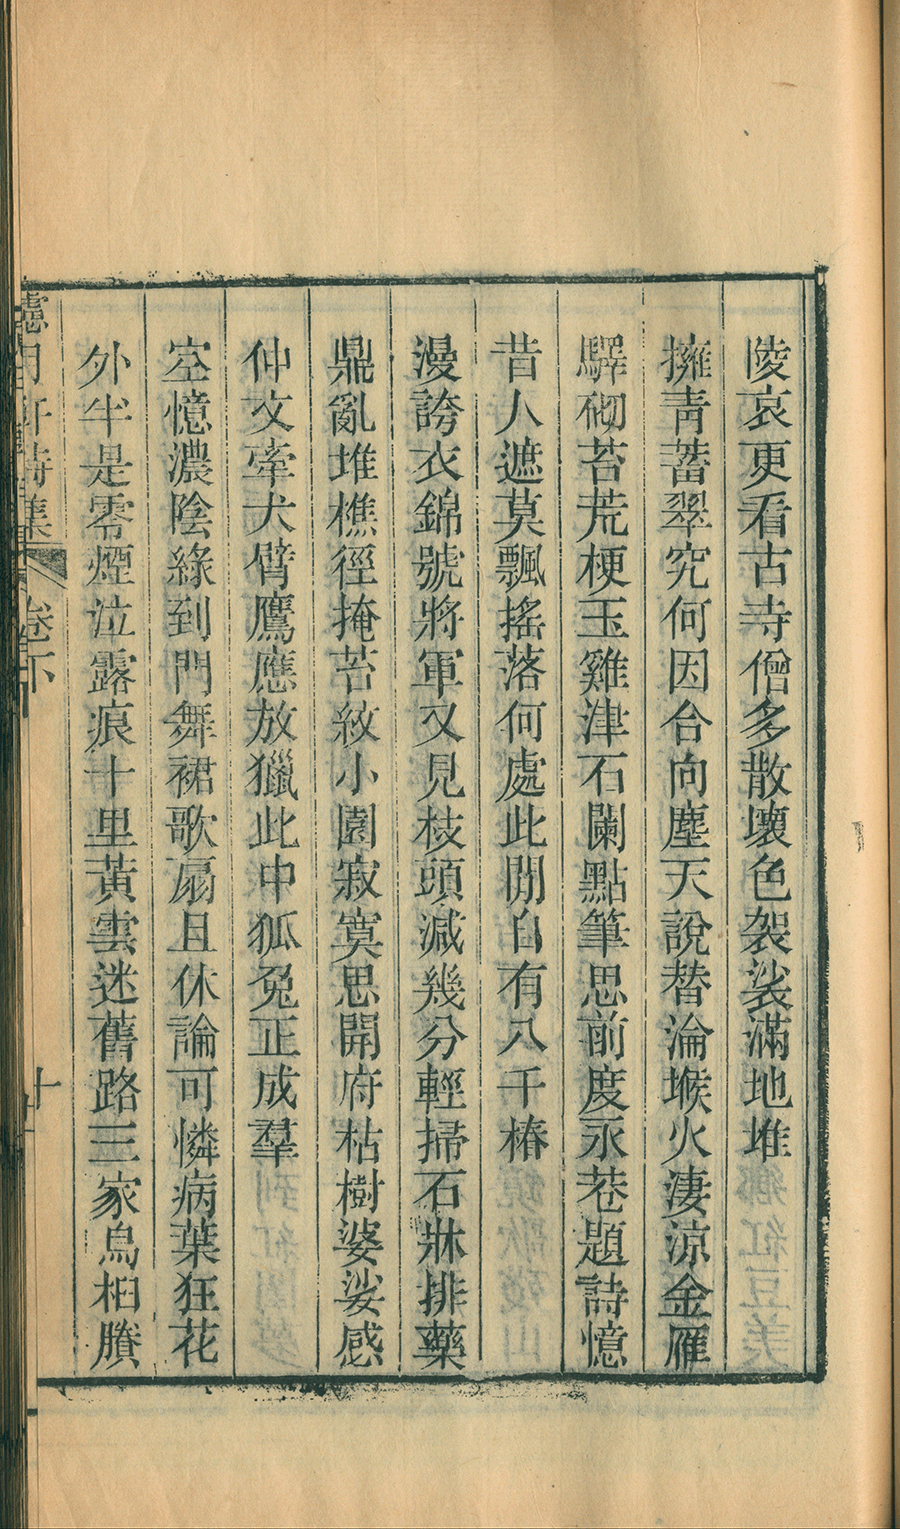 陵哀更看古寺僧多散壞色袈裟滿地堆
擁青蓄翠究何因合向塵天說替淪堠火淒涼金雁
驛砌苔荒梗玉雞津石闌點筆思前度永巷題詩憶
昔人遮莫飄搖落何處此閒自有八千椿
漫誇衣錦號將軍又見枝頭減幾分輕掃石牀排藥
鼎亂堆樵徑掩苔紋小園寂寞思開府枯樹婆娑感
仲文牽犬臂鷹應放獵此中狐兔正成羣
空憶濃陰綠到門舞裙歌扇且休論可憐病葉狂花
外半是零煙泣露痕十里黃雲迷舊路三家烏桕賸
月軒詩集 卷下 十